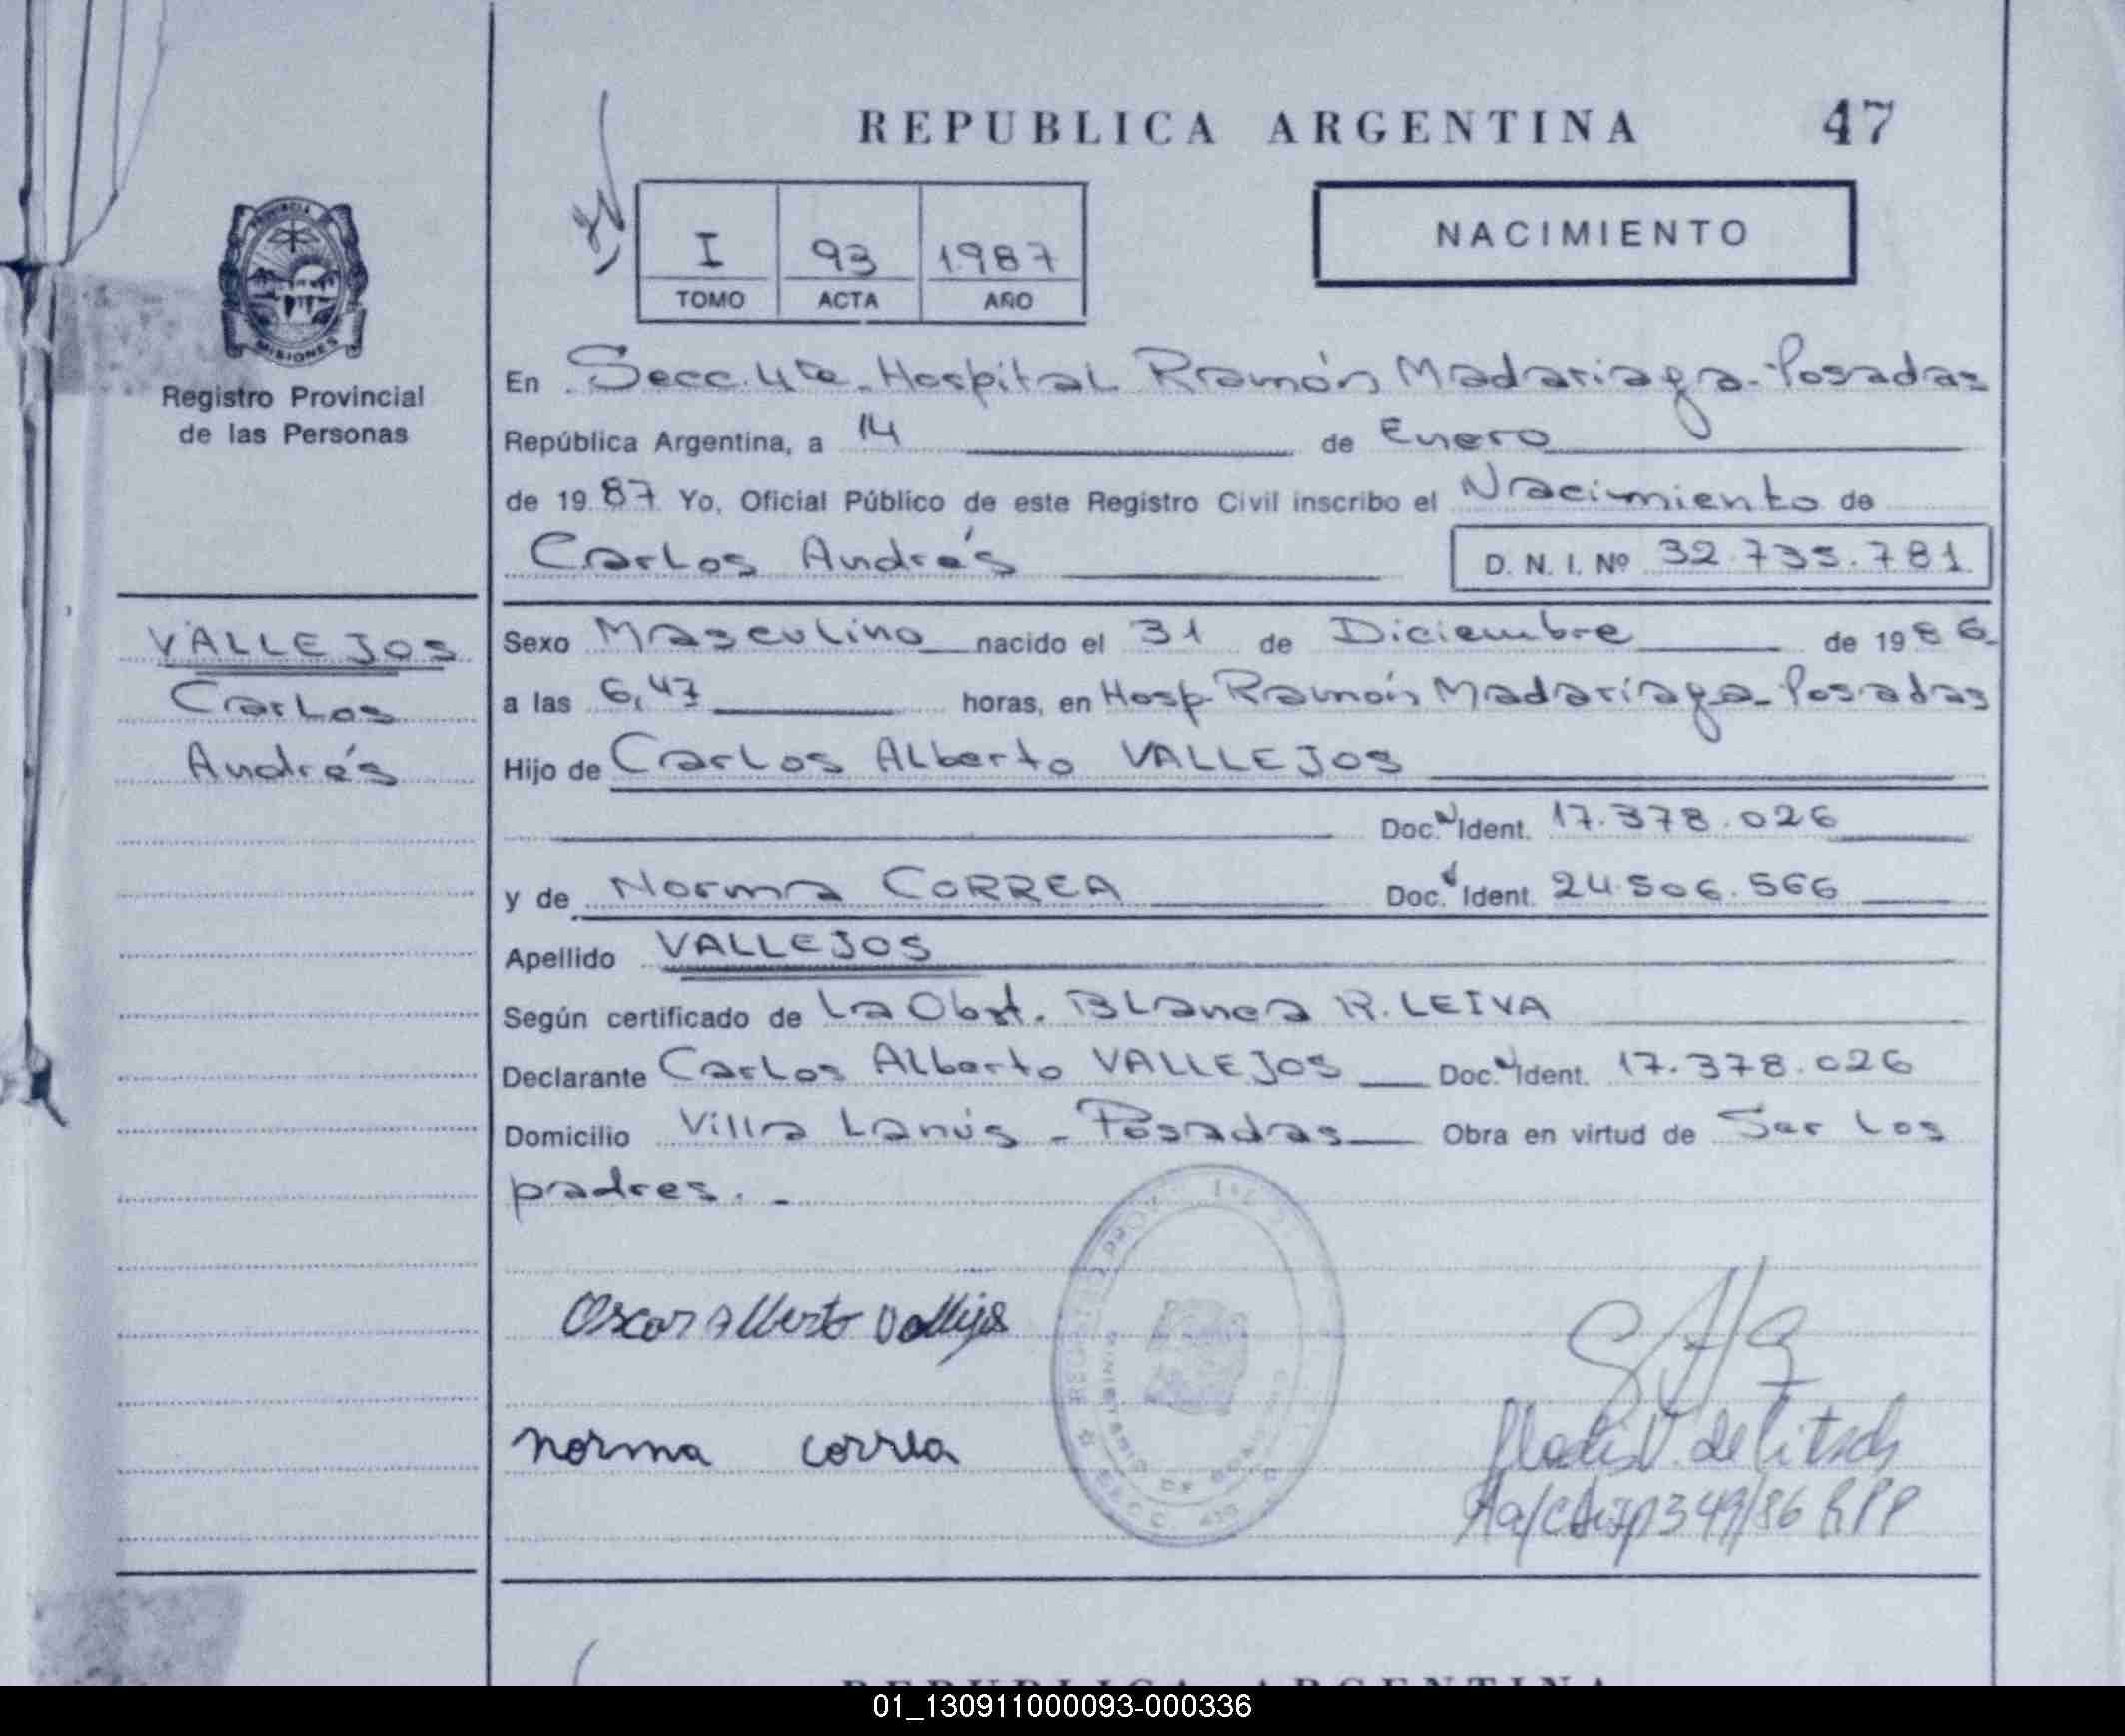 REPUBLICA ARGENTINA 47
I 93 1987
TOMO ACTA AÑO
NACIMIENTO
PROVINCIA
MISIONES
Registro Provincial
de las Personas
VALLEJOS
Carlos
Andrés
En Secc. 4ta. Hospital Ramón Madariaga - Posadas
República Argentina, a 14 de Enero
de 1987 Yo, Oficial Público de este Registro Civil inscribo el Nacimiento de
Carlos Andrés D. N. I. Nº 32.735.781
Sexo Masculino nacido el 31 de Diciembre de 1986
a las 6,47 horas, en Hosp. Ramón Madariaga - Posadas
Hijo de Carlos Alberto VALLEJOS
Doc. Ident. 17.378.026
y de Norma CORREA Doc. Ident. 24.506.566
Apellido VALLEJOS
Según certificado de La Obst. Blanca R. LEIVA
Declarante Carlos Alberto VALLEJOS Doc. Ident. 17.378.026
Domicilio Villa Lanús - Posadas Obra en virtud de Ser los
padres. -
Oscar Alberto Vallejos
norma correa
349/86 RPP
REPUBLICA ARGENTINA
01_130911000093-000336